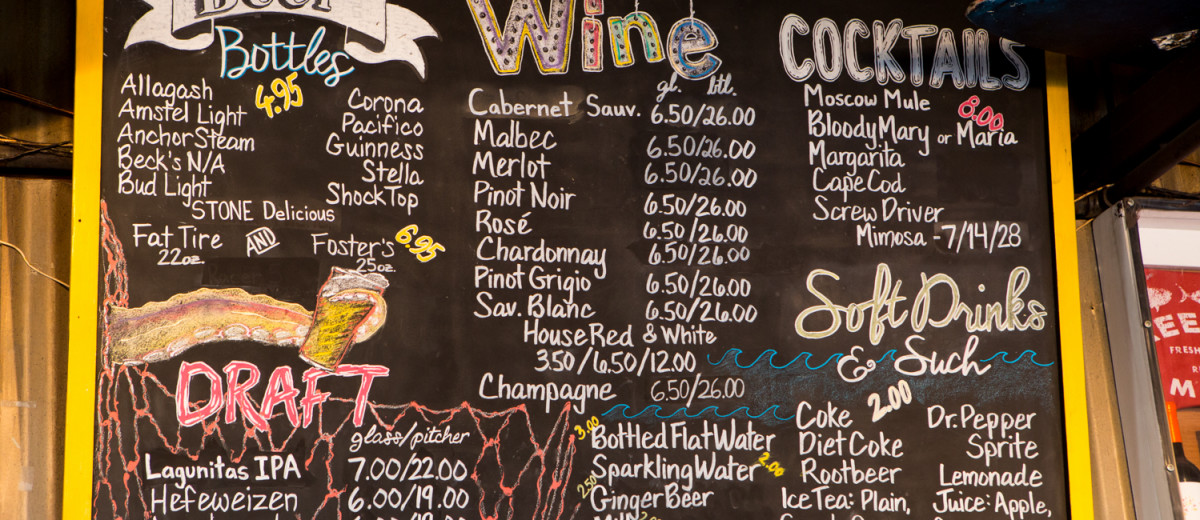 Beer
Bottles
4.95
Allagash
Amstel Light
Anchor Steam
Beck's N/A
Bud Light
Corona
Pacifico
Guinness
Stella
Shock Top
STONE Delicious
Fat Tire
22oz.
AND
Foster's
25oz.
6.95
DRAFT
glass/pitcher
Lagunitas IPA 7.00/22.00
Hefeweizen 6.00/19.00
Wine
gl. btl.
Cabernet Sauv. 6.50/26.00
Malbec 6.50/26.00
Merlot 6.50/26.00
Pinot Noir 6.50/26.00
Rosé 6.50/26.00
Chardonnay 6.50/26.00
Pinot Grigio 6.50/26.00
Sav. Blanc 6.50/26.00
House Red & White
3.50/6.50/12.00
Champagne 6.50/26.00
3.00 Bottled Flat Water
Sparkling Water 2.00
2.50 Ginger Beer
COCKTAILS
Moscow Mule 8.00
Bloody Mary or Maria
Margarita
Cape Cod
Screw Driver
Mimosa - 7/14/28
Soft Drinks
& Such
2.00
Coke
Diet Coke
Rootbeer
Ice Tea: Plain,
Dr. Pepper
Sprite
Lemonade
Juice: Apple,
FRESH